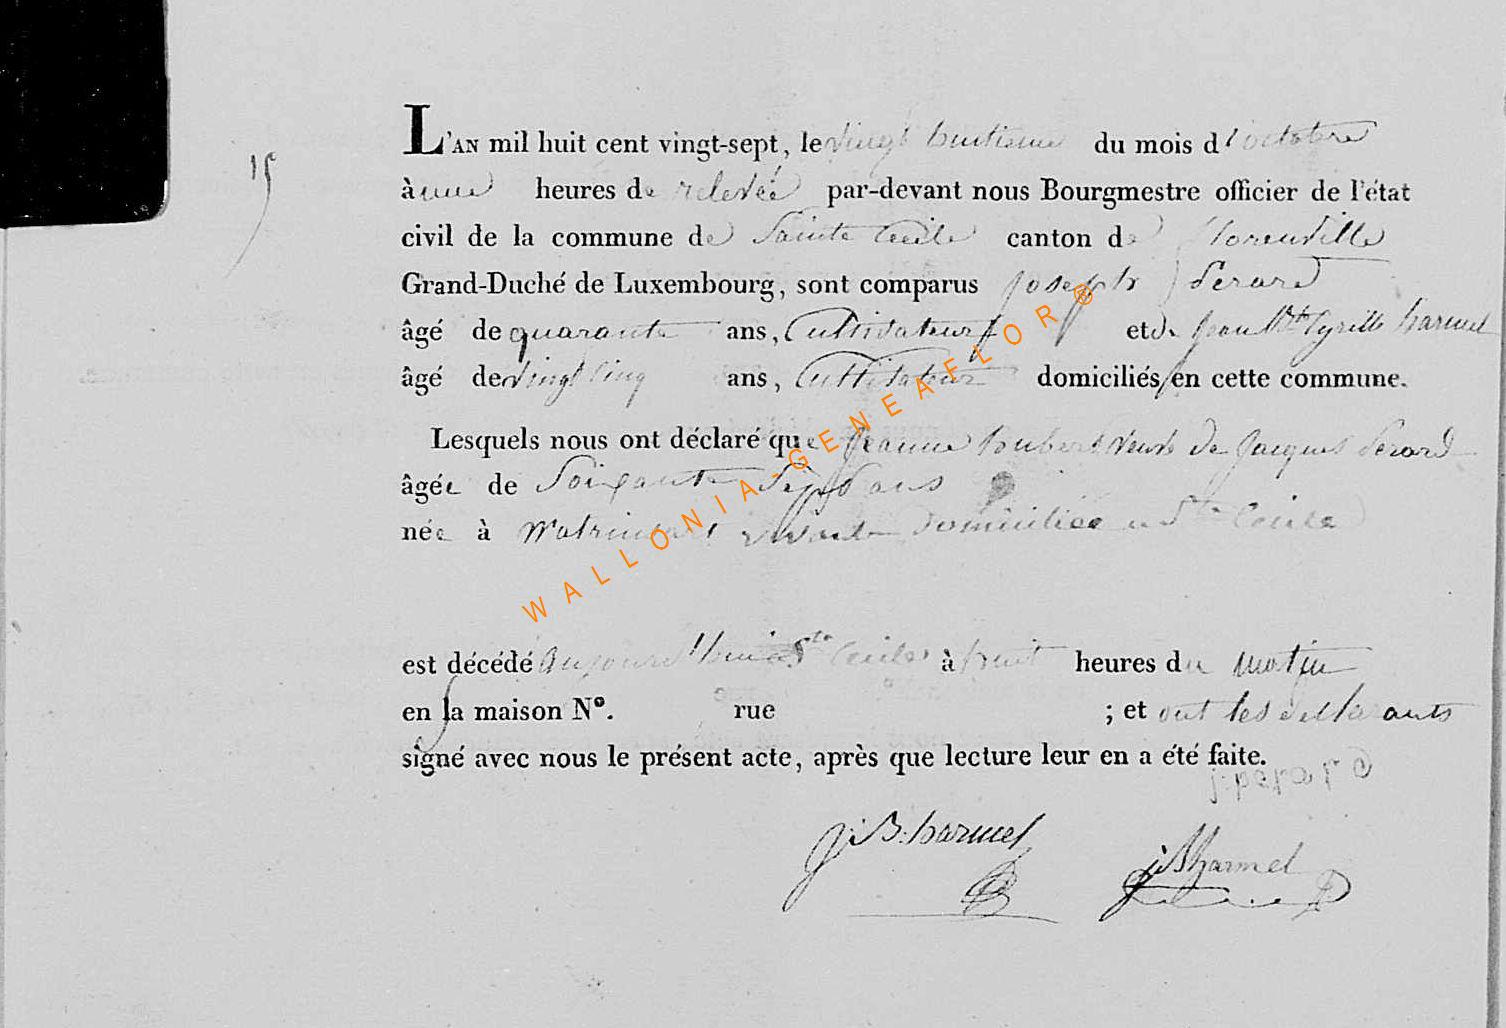 15
L'AN mil huit cent vingt-sept, le vingt huitieme du mois d'octobre
à une heures de relevée par-devant nous Bourgmestre officier de l'état
civil de la commune de Sainte Cecile canton de florenville
Grand-Duché de Luxembourg, sont comparus joseph perard
âgé de quarante ans, Cultivateur et de jean Bte Cyrille harmel
âgé de vingt cinq ans, Cultivateur domiciliés en cette commune.
Lesquels nous ont déclaré que jeanne hubert veuve de jacques perard
âgée de Soixante Sept ans
née à domiciliée a Ste Cecile
est décédé aujourd'hui a Ste Cecile à huit heures du matin
en la maison N°. rue ; et ont les declarants
signé avec nous le présent acte, après que lecture leur en a été faite.
j: perard
j: B: harmel jBharmel
WALLONIA-GENEAFLOR®